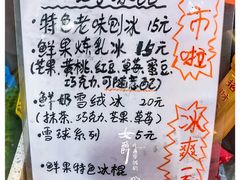 ·特色老味刨冰 15元
·鲜果炼乳冰 15元
(芒果、黄桃、红豆、草莓、蜜豆、
巧克力、可随意配)
·鲜奶雪绒冰 20元
(抹茶、巧克力、芒果、草莓)
·雪球系列 5元
·鲜果特色冰棍
市
啦
冰
爽